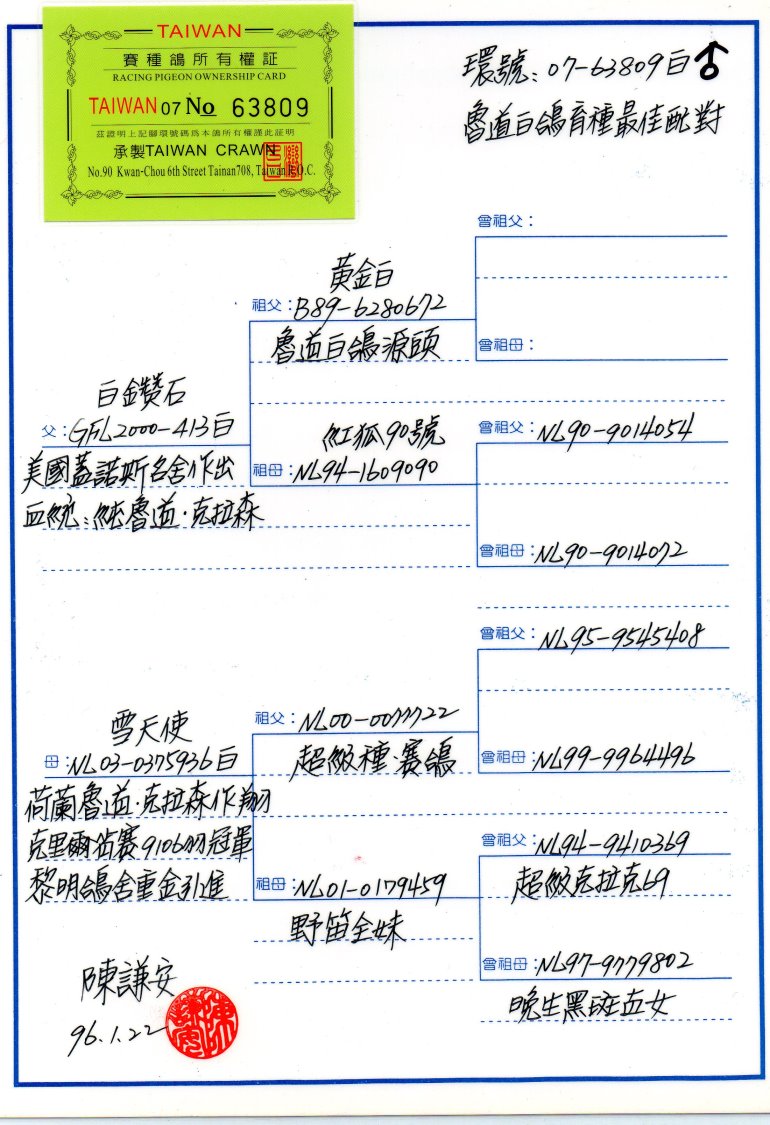 TAIWAN
賽種鴿所有權証
RACING PIGEON OWNERSHIP CARD
TAIWAN 07 No 63809
茲證明上記腳環號碼爲本鴿所有權謹此証明
承製TAIWAN CRAWN
No.90 Kwan-Chou 6th Street Tainan708, Taiwan R.O.C.
環號:07-63809白♂
魯道白鴿育種最佳配對
曾祖父:
黃金白
祖父:B89-6280672
魯道白鴿源頭
曾祖母:
白金鑽石
父:GFL2000-413白
美國蓋諾斯名舍作出
血統:純魯道·克拉森
紅狐90號
祖母:NL94-1609090
曾祖父:NL90-9014054
曾祖母:NL90-9014072
曾祖父:NL95-9545408
祖父:NL00-0077722
超級種·賽鴿
曾祖母:NL99-9964496
雪天使
母:NL03-0375936白
荷蘭魯道·克拉森作翔
克里爾佔賽9106羽冠軍
黎明鴿舍重金引進
曾祖父:NL94-9410369
超級克拉克69
祖母:NL01-0179459
野笛全妹
曾祖母:NL97-9779802
晚生黑斑直女
陳謙安
96.1.22